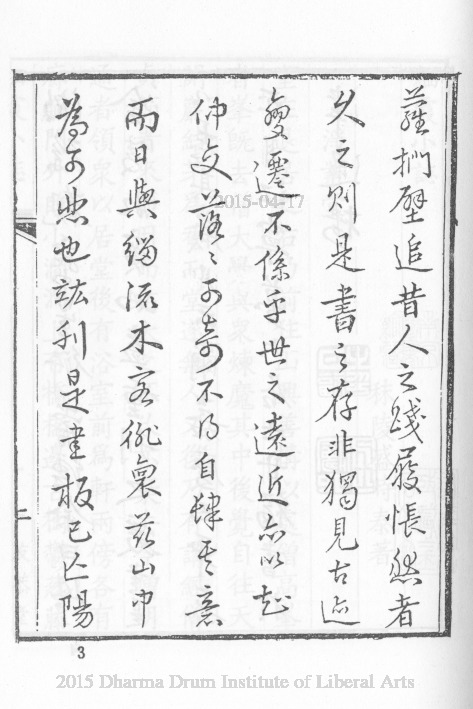 蘿捫壁追昔人之踐履悵然者
久之則是書之存非獨見古迹
變遷不係乎世之遠近亦以起
仲文落〻可奇不得自肆其意
而日與緇流木客徘裹茲山中
為可悲也茲刊是書板已仄陽
3
2015-04-17
2015 Dharma Drum Institute of Liberal Arts